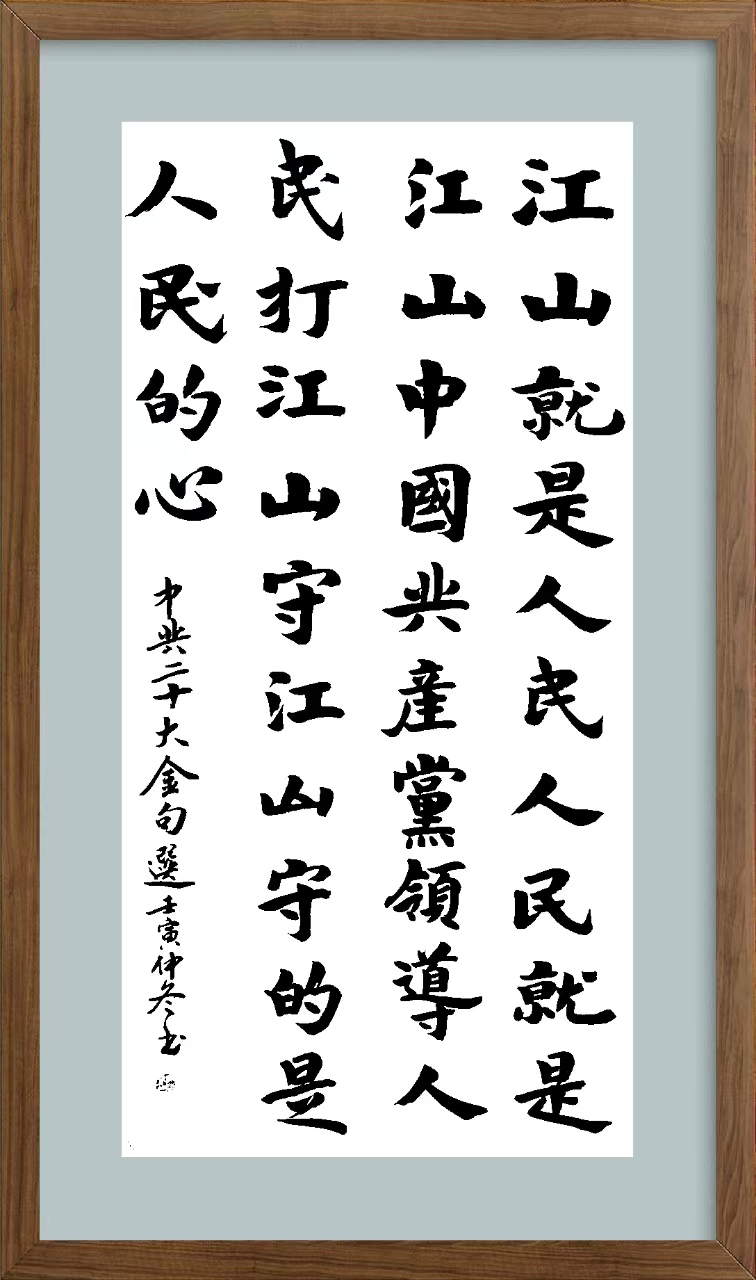 江山就是人民人民就是
江山中國共産黨領導人
民打江山守江山守的是
人民的心
中共二十大金句選壬寅仲冬书